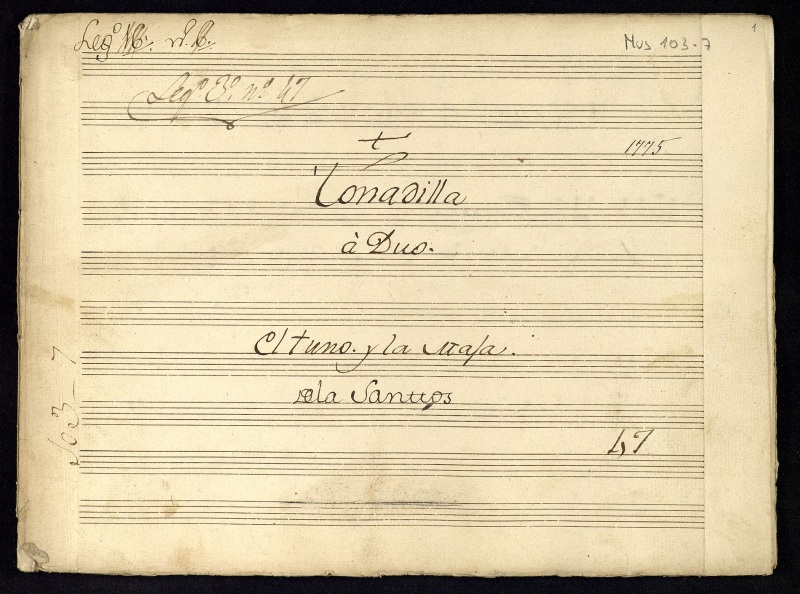 Leg.º
Mus 103-7
1
Leg.º 3.º nº 47
1775
Tonadilla
à Duo.
El tuno. y la Maja.
Dela Santtos
47
103-7